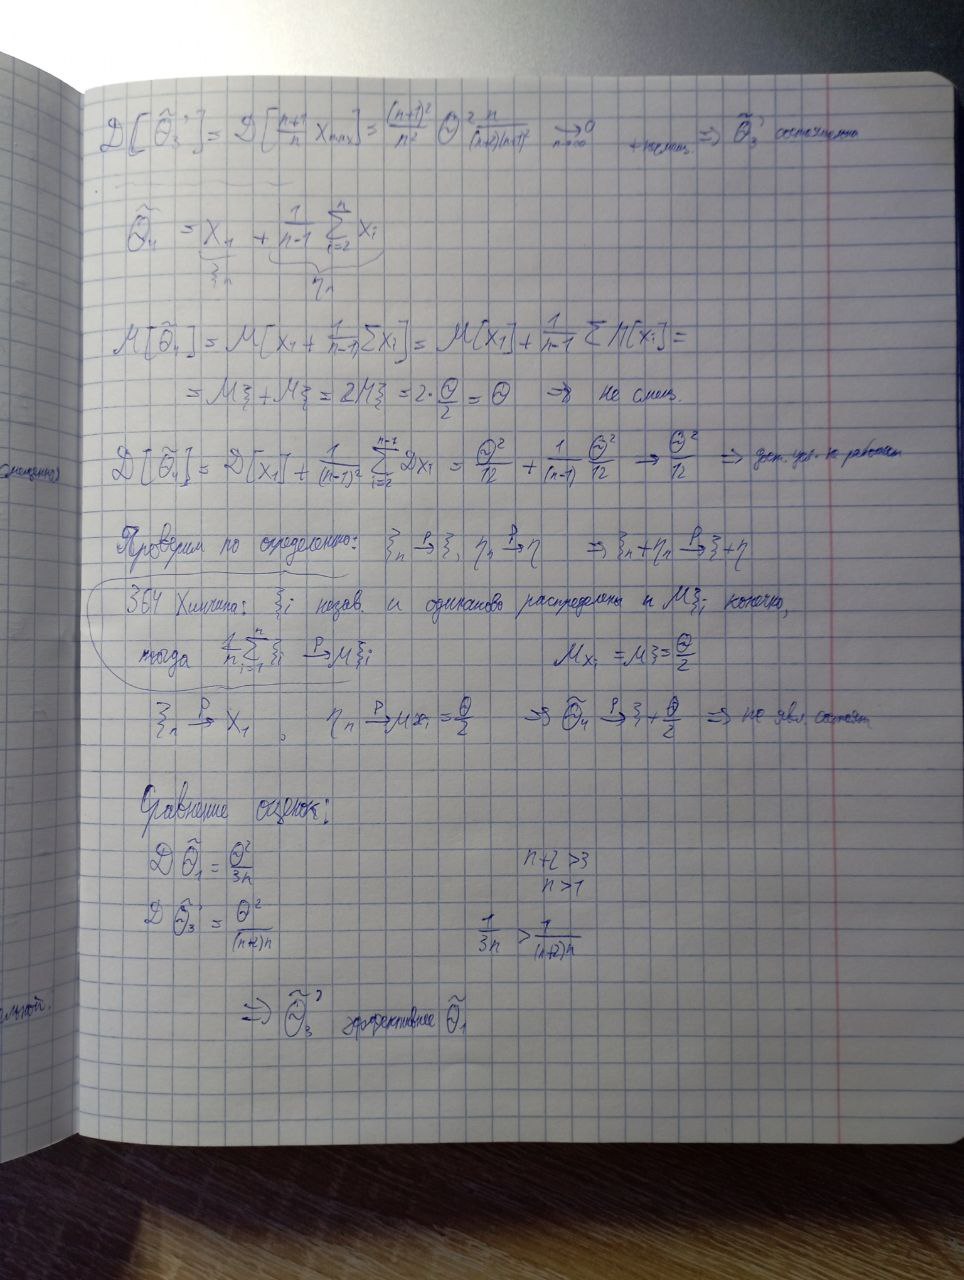 D[θ̃₃'] = D[(n+1)/n x_max] = (n+1)²/n² θ² n/((n+2)(n+1)²) → 0 n→∞ + несмещ. => θ̃₃' состоятельна
θ̃₄ = x₁ + 1/(n-1) Σ_{i=2}^{n} xᵢ
ξₙ ηₙ
M[θ̃₄] = M[x₁ + 1/(n-1) Σxᵢ] = M[x₁] + 1/(n-1) Σ M[xᵢ] =
= Mξ + Mξ = 2Mξ = 2·θ/2 = θ => не смещ.
D[θ̃₄] = D[x₁] + 1/(n-1)² Σ_{i=2}^{n-1} Dxᵢ = θ²/12 + 1/(n-1) θ²/12 → θ²/12 => дост. усл. не работает
смещенная
Проверим по определению: ξₙ →ᴾ ξ, ηₙ →ᴾ η => ξₙ + ηₙ →ᴾ ξ + η
ЗБЧ Хинчина: ξᵢ незав. и одинаково распределены и Mξᵢ конечно,
тогда 1/n Σ_{i=1}^{n} ξᵢ →ᴾ Mξᵢ Mxᵢ = Mξ = θ/2
ξₙ →ᴾ x₁, ηₙ →ᴾ Mxᵢ = θ/2 => θ̃₄ →ᴾ ξ + θ/2 => не явл. состоят
Сравнение оценок:
D θ̃₁ = θ²/3n n+2 > 3
n > 1
D θ̃₃' = θ²/((n+2)n) 1/3n > 1/((n+2)n)
=> θ̃₃' эффективнее θ̃₁